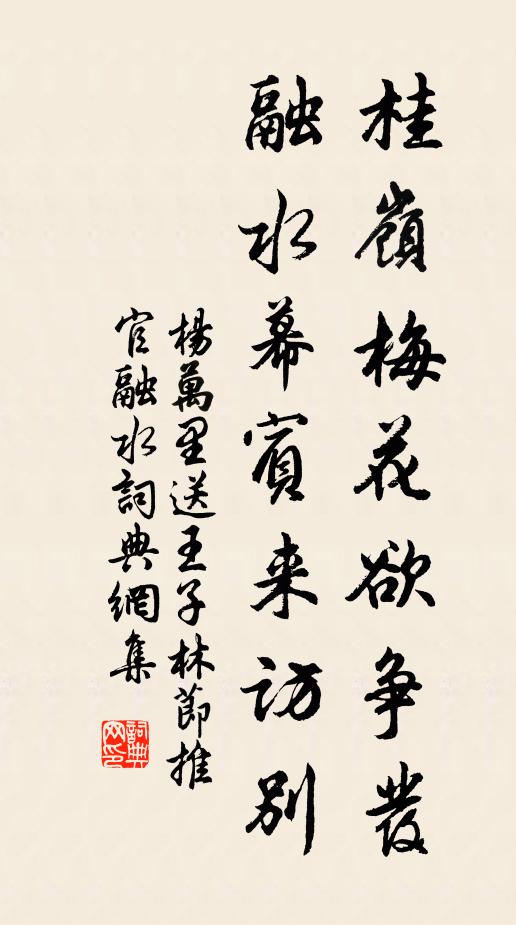 桂嶺梅花欲争發
融水幕賓来訪別
楊萬里送王子林節推
官融水詞典網集
詞典網印